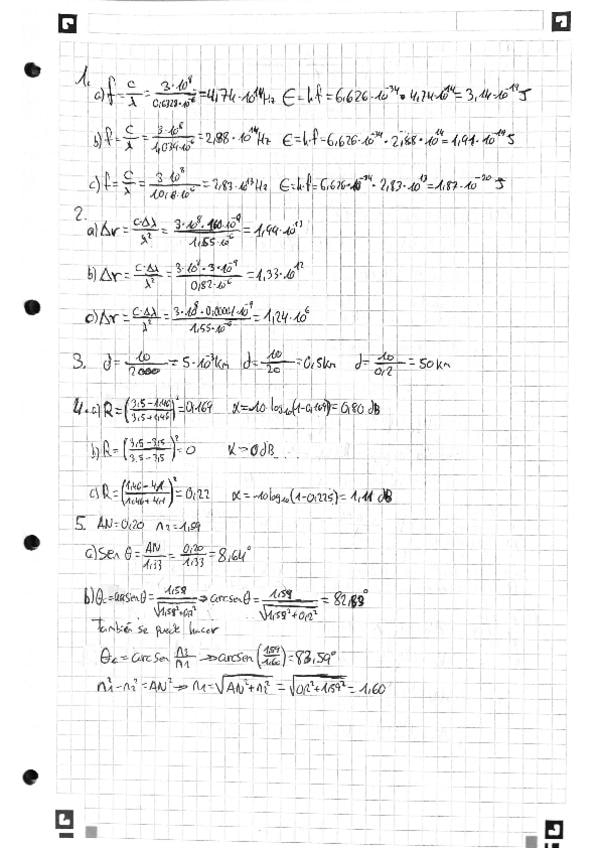 1.
a) f = c/λ = 3·10^8/0,6328·10^-6 = 4,74·10^14 Hz E = h·f = 6,626·10^-34 · 4,74·10^14 = 3,14·10^-19 J
b) f = c/λ = 3·10^8/1,034·10^-6 = 2,88·10^14 Hz E = h·f = 6,626·10^-34 · 2,88·10^14 = 1,91·10^-19 J
c) f = c/λ = 3·10^8/10,6·10^-6 = 2,83·10^13 Hz E = h·f = 6,626·10^-34 · 2,83·10^13 = 1,87·10^-20 J
2.
a) Δr = c·Δλ/λ² = 3·10^8·160·10^-9/1,55·10^-6 = 1,99·10^13
b) Δr = c·Δλ/λ² = 3·10^8·3·10^-9/0,82·10^-6 = 1,33·10^12
c) Δr = c·Δλ/λ² = 3·10^8·0,00001·10^-9/1.55·10^-6 = 1,24·10^6
3. d = 10/2000 = 5·10^-3 km d = 10/20 = 0,5 km d = 10/0,2 = 50 km
4. a) R = (3,5-1,46/3,5+1,46)² = 0,169 α = -10 log10(1-0,169) = 0,80 dB
b) R = (3,5-3,5/3,5-3,5)² = 0 α = 0 dB
c) R = (1,46-4,1/1,46+4,1)² = 0,22 α = -10 log10(1-0,225) = 1,11 dB
5. AN = 0,20 n2 = 1,59
a) Sen θ = AN/1,33 = 0,20/1,33 = 8,64°
b) θc = arcsen θ = 1,59/√1,59²+0,2² ⇒ arcsen θ = 1,59/√1,59²+0,2² = 82,83°
También se puede hacer
θc = arcsen n2/n1 ⇒ arcsen (1,59/1,60) = 83,59°
n1²-n2² = AN² ⇒ n1 = √AN²+n2² = √0,2²+1,59² = 1,60